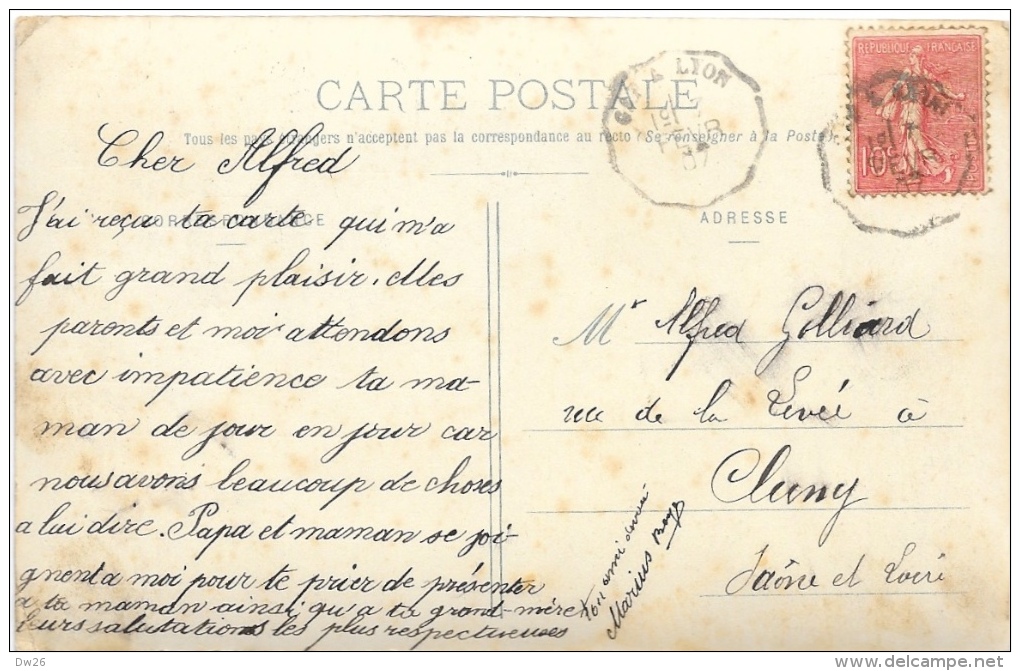 CARTE POSTALE
Tous les pays étrangers n'acceptent pas la correspondance au recto (Se renseigner à la Poste).
CORRESPONDANCE
ADRESSE
RÉPUBLIQUE FRANÇAISE
10
LYON
Cher Alfred
J'ai reçu ta carte qui m'a
fait grand plaisir. Mes
parents et moi attendons
avec impatience ta ma-
man de jour en jour car
nous avons beaucoup de choses
a lui dire. Papa et maman se joi-
gnent a moi pour te prier de présenter
a ta maman ainsi qu'a ta grand-mère
leurs salutations les plus respectueuses
ton ami
Marius
Mr Alfred Golliard
rue de la Levée à
Cluny
Saône et Loire
Dw26
delcampe.net